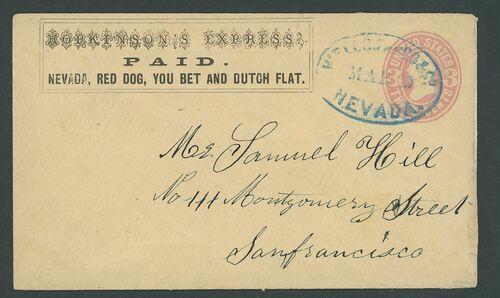 HOPKINSON'S EXPRESS.
PAID.
NEVADA, RED DOG, YOU BET AND DUTCH FLAT.
WELLS, FARGO & CO
MAR
NEVADA.
UNITED STATES
Mr. Samuel Hill
No 44 Montgomery Street
Sanfrancisco